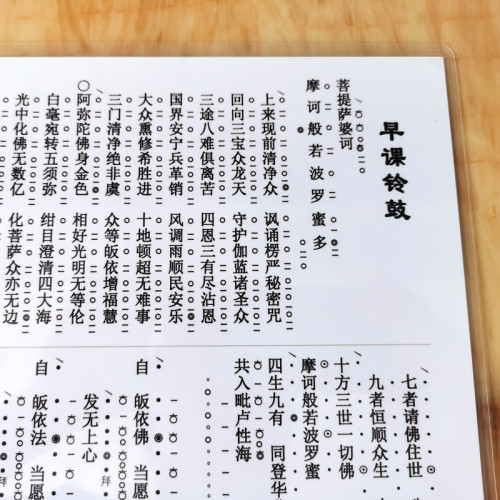 早课铃鼓
菩提萨婆诃
摩诃般若波罗蜜多
上来现前清净众 讽诵楞严秘密咒
回向三宝众龙天 守护伽蓝诸圣众
三途八难俱离苦 四恩三有尽沾恩
国界安宁兵革销 风调雨顺民安乐
大众熏修希胜进 十地顿超无难事
三门清净绝非虞 众等皈依增福慧
阿弥陀佛身金色 相好光明无等伦
白毫宛转五须弥 绀目澄清四大海
光中化佛无数亿 化菩萨众亦无边
七者请佛住世
九者恒顺众生
十方三世一切佛
摩诃般若波罗蜜
四生九有 同登华
共入毗卢性海
自皈依佛 当愿
发无上心
拜
自皈依法 当愿
拜